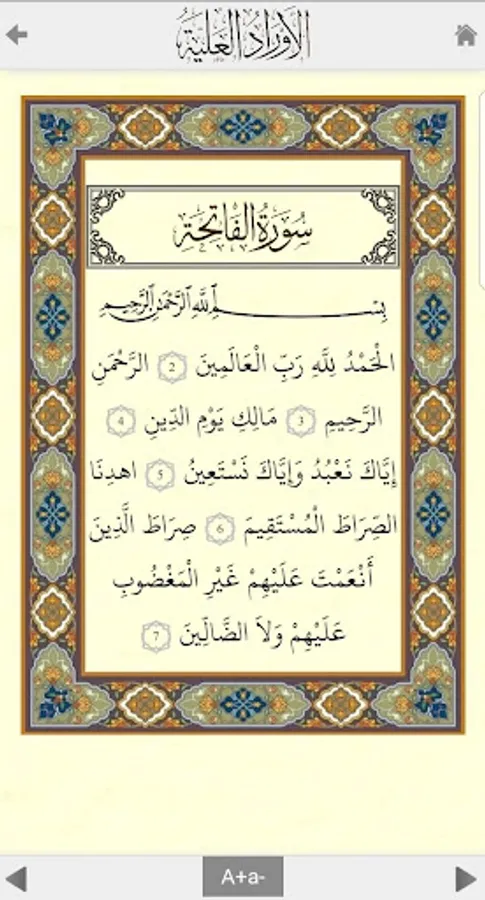 الأوراد العلية
سُورَةُ الفَاتِحَة
بِسْمِ اللَّهِ الرَّحْمَنِ الرَّحِيمِ
الْحَمْدُ لِلَّهِ رَبِّ الْعَالَمِينَ 2 الرَّحْمَنِ
الرَّحِيمِ 3 مَالِكِ يَوْمِ الدِّينِ 4
إِيَّاكَ نَعْبُدُ وَإِيَّاكَ نَسْتَعِينُ 5 اهدِنَا
الصِّرَاطَ الْمُسْتَقِيمَ 6 صِرَاطَ الَّذِينَ
أَنْعَمْتَ عَلَيْهِمْ غَيْرِ الْمَغْضُوبِ
عَلَيْهِمْ وَلاَ الضَّالِّينَ 7
A+a-